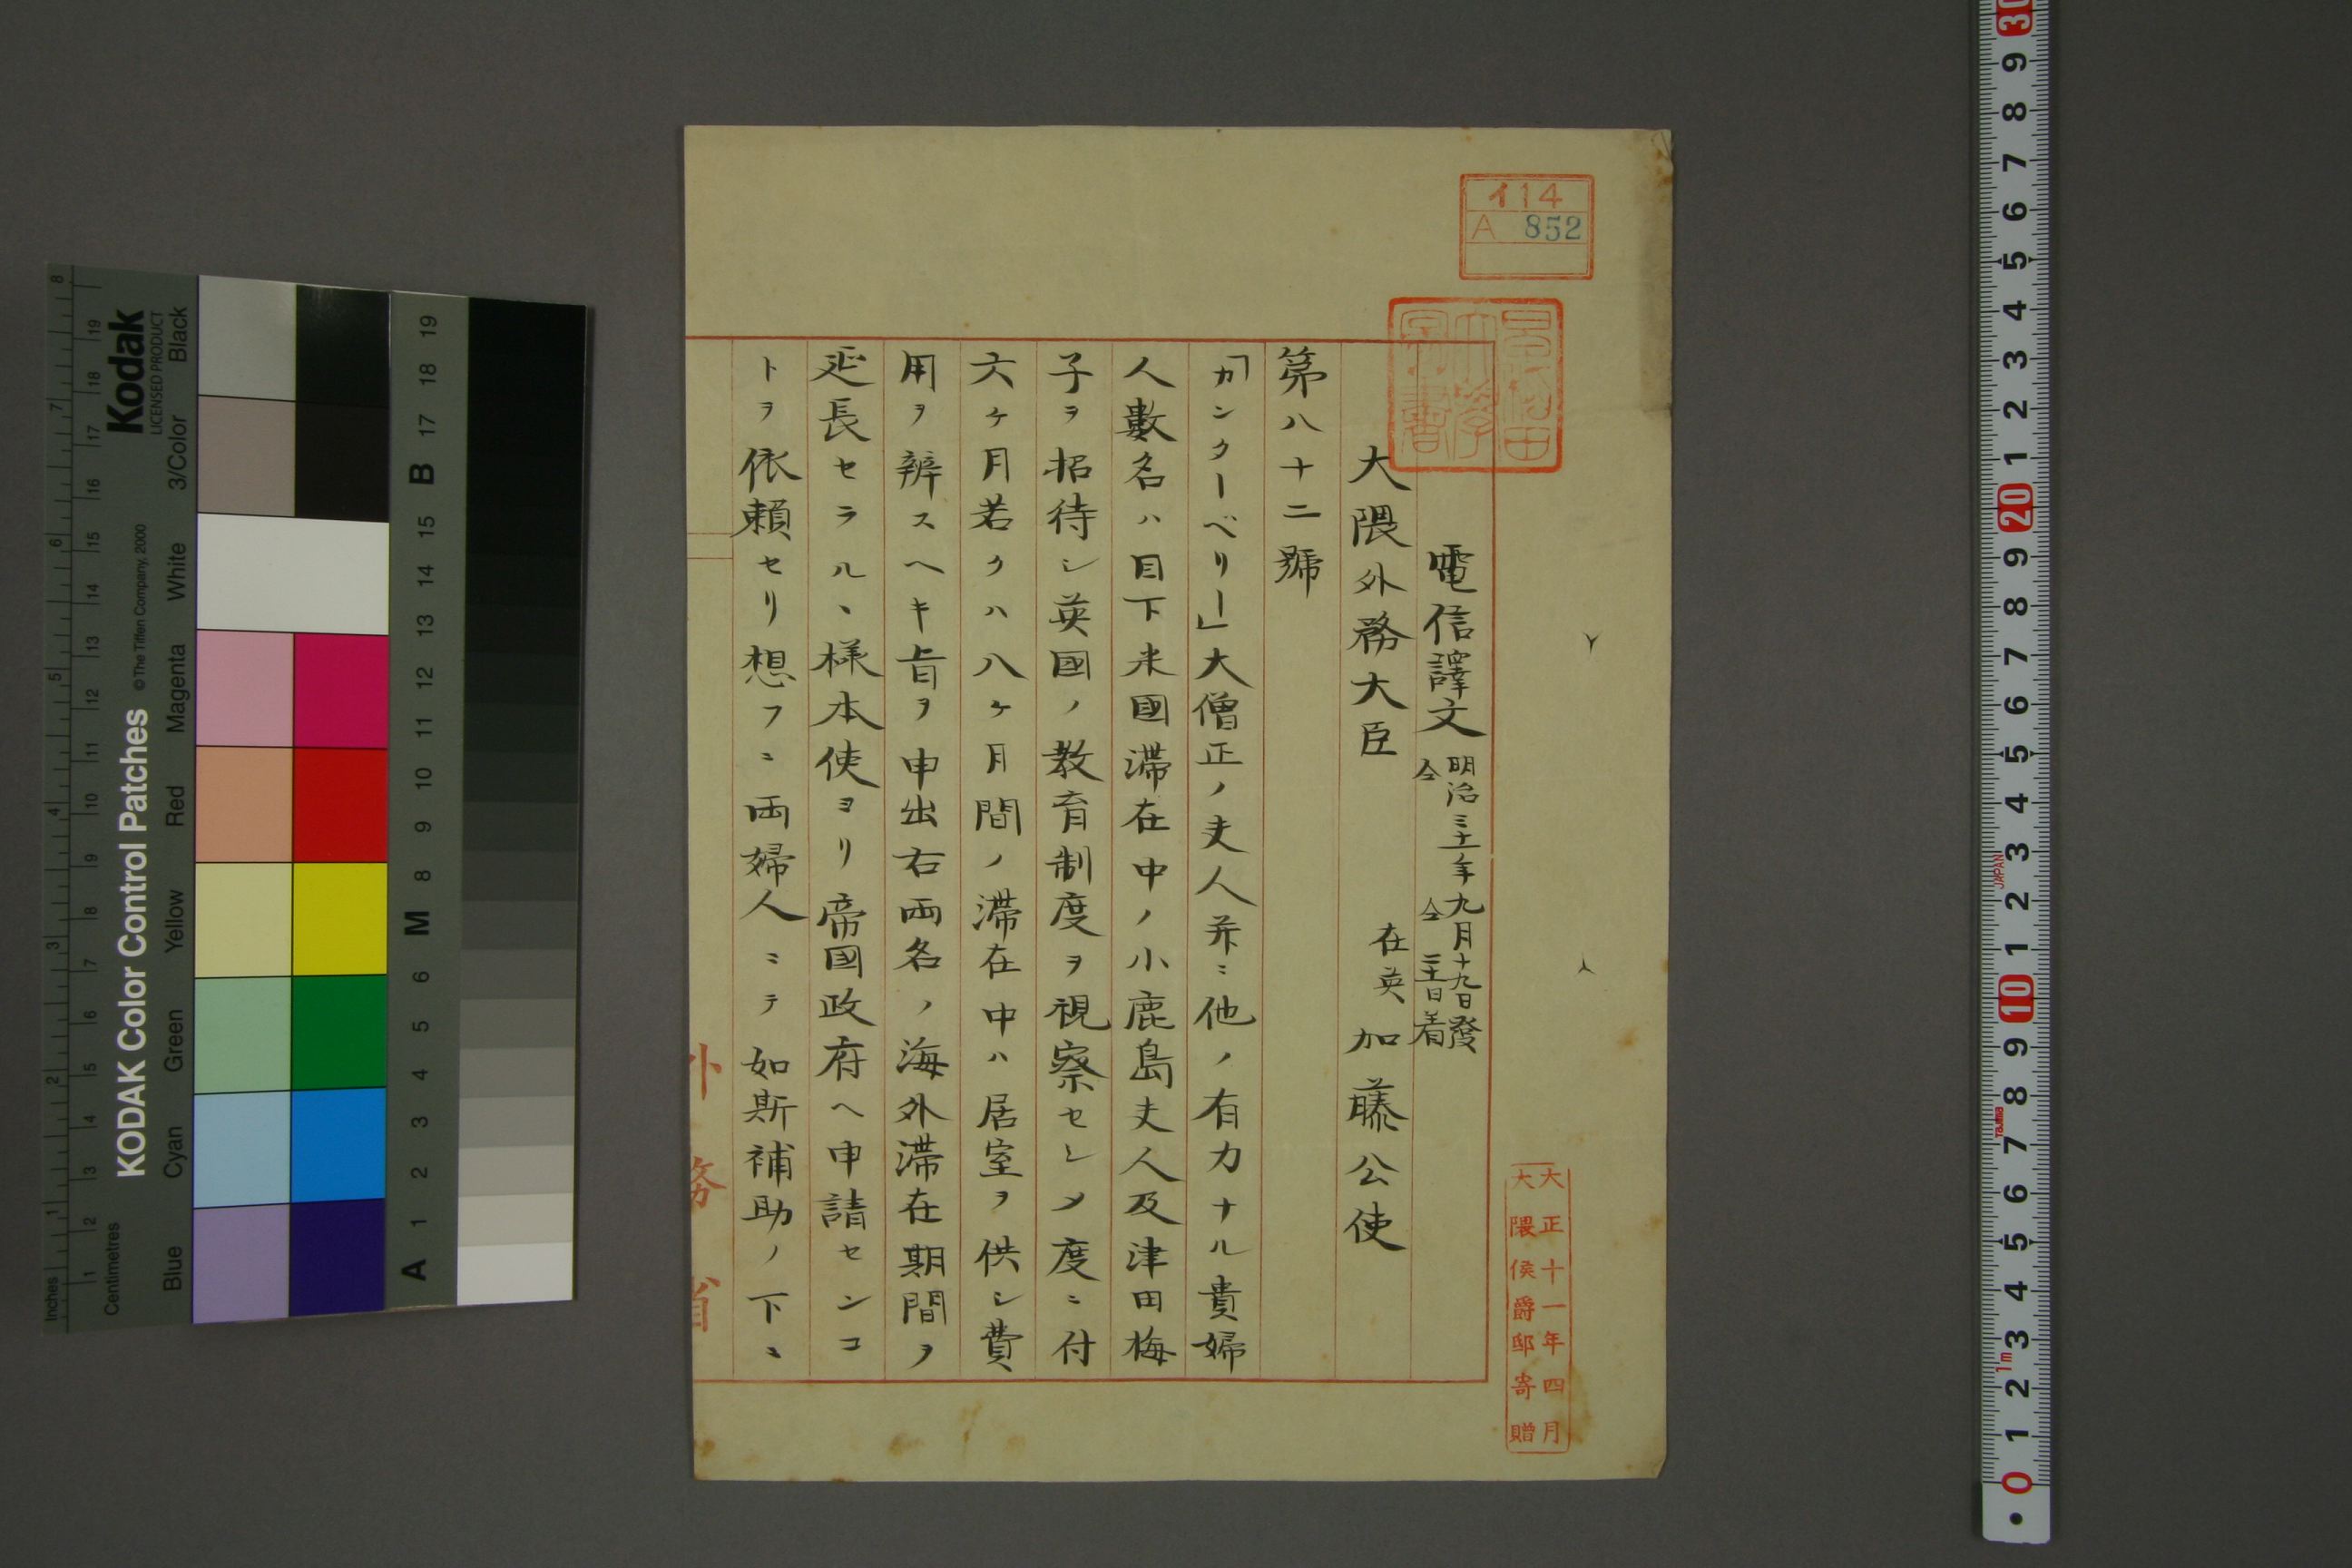 電信譯文 明治三十一年九月十九日發
仝 仝 二十日着
大隈外務大臣 在英 加藤公使
第八十二號
「カンターベリー」大僧正ノ夫人并ニ他ノ有力ナル貴婦
人數名ハ目下米國滞在中ノ小鹿島夫人及津田梅
子ヲ招待シ英國ノ教育制度ヲ視察セシメ度ニ付
六ケ月若クハ八ケ月間ノ滞在中ハ居室ヲ供シ費
用ヲ辨スヘキ旨ヲ申出右両名ノ海外滞在期間ヲ
延長セラルヽ様本使ヨリ帝國政府ヘ申請センコ
トヲ依頼セリ想フニ両婦人ニテ如斯補助ノ下ニ
外務省
イ14
A 852
早稲田大學圖書
大正十一年四月
大隈侯爵邸寄贈
Kodak
LICENSED PRODUCT
KODAK Color Control Patches
© The Tiffen Company, 2000
Blue Cyan Green Yellow Red Magenta White 3/Color Black
Inches 1 2 3 4 5 6 7 8
Centimetres 1 2 3 4 5 6 7 8 9 10 11 12 13 14 15 16 17 18 19
A 1 2 3 4 5 6 M 8 9 10 11 12 13 14 15 B 17 18 19
0 1 2 3 4 5 6 7 8 9 10 1 2 3 4 5 6 7 8 9 20 1 2 3 4 5 6 7 8 9 30
1m
Tajima
JAPAN